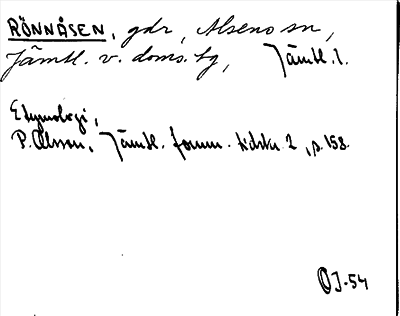 RÖNNÅSEN, gdr, Alseno sn,
Jämtl. v. doms. tg, Jämtl. l.
Etymologi,
P. Olsson, Jämtl. fornm. tidskr. 2, p. 158.
OJ-54